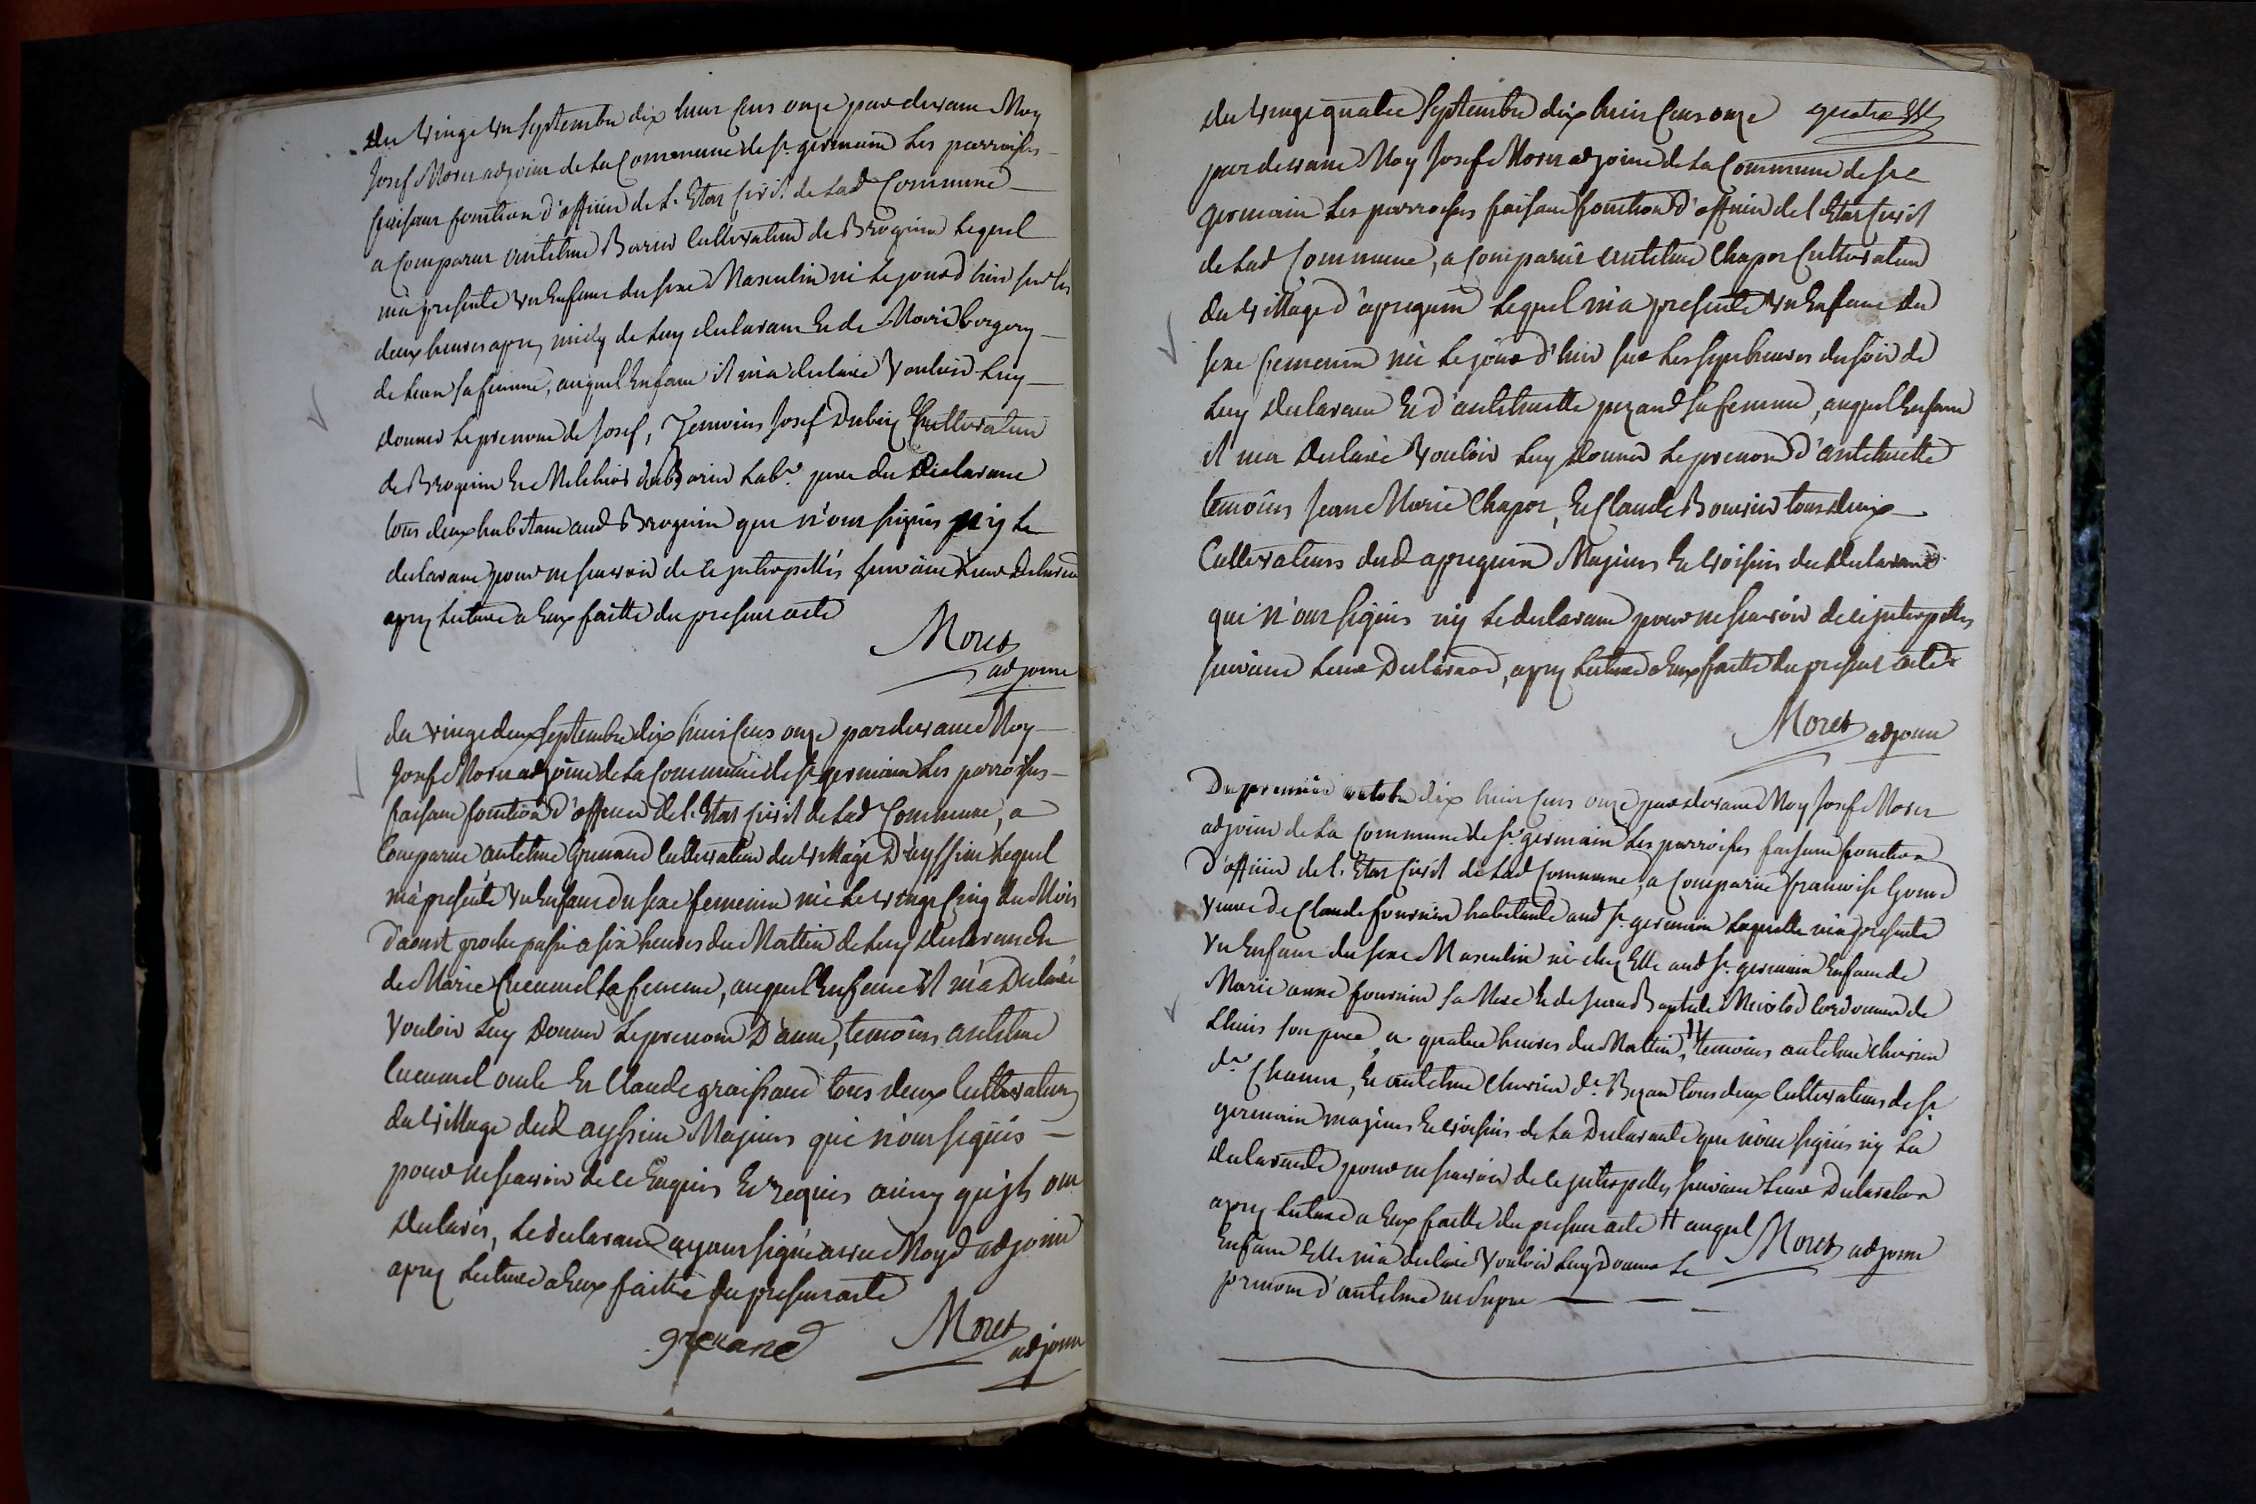 du vingt un septembre dix huit cens onze par devant Moy
Josef Moret adjoint de La Commune de st germain Les parroisses
faisant fonction d'officier de L'Etat civil de Lad Commune
a Comparut antelme Borin Cultivateur de Brognin Lequel
m'a presenté un Enfant du sexe Masculin né Le jour d'hier sur les
deux heures apres midy de Luy declarant Et de Marie
de Leon sa femme, auquel Enfant il m'a declaré vouloir Luy
donner Le prenom de Josef, Temoins Josef Dubuis Cultivateur
de Brognin Et Melchior Borin Labr pere du Declarant
tous deux habitant aud Brognin qui n'ont signés ny Le
declarant pour ne scavoir de ce jnterpellés suivant Leur Declaration
apres Lecture a Eux faitte du present acte
Moret
adjoint
du vingt deux septembre dix huit cens onze par devant Moy
Josef Moret adjoint de La Commune de st germain Les parroisses
faisant fonction d'officier de l'Etat civil de Lad Commune, a
Comparut antelme Grenand Cultivateur du village D'ayssin Lequel
m'a presenté un Enfant du sexe femenin né Le vingt cinq du Mois
d'aoust proche passé a six heures du Mattin de Luy declarant Et
de Marie Cucumel sa femme, auquel Enfant il m'a Declaré
vouloir Luy Donner Le prenom D'anne, temoins antelme
Cucumel oncle Et Claude graissand tous deux Cultivateurs
du village dud ayssin Majeurs qui n'ont signés
pour ne scavoir de ce Enquis Et requis ainsy qu'jls ont
declarés, Le declarant ayant signé avec Moyd adjoint
apres Lecture a Eux faitte du present acte
grenand
Moret
adjoint
du vingt quatre septembre dix huit cens onze
par devant Moy Josef Moret adjoint de La Commune de st
germain Les parroisses faisant fonction d'officier de l'Etat Civil
de Lad Commune, a Comparut antelme Chapot Cultivateur
du village d'apregnin Lequel m'a presenté un Enfant du
sexe femenin né Le jour d'hier sur Les sept heures du soir de
Luy declarant Et d'antelmette pezand sa femme, auquel Enfant
il m'a declaré vouloir Luy donner Le prenom d'antelmette
temoins Jean Marie Chapot, Et Claude Bouvier tous deux
Cultivateurs dud apregnin Majeurs Et voisins du declarant
qui n'ont signés ny Le declarant pour ne scavoir de ce jnterpellés
suivant Leur Declaration, apres Lecture a Eux faitte du present acte
Moret adjoint
Du premier octobre dix huit cens onze par devant Moy Josef Moret
adjoint de La Commune de st germain Les parroisses faisant fonction
d'officier de l'Etat Civil de Lad Commune, a Comparut francoise
veuve de Claude fournier habitante aud st germain Laquelle m'a presenté
un Enfant du sexe Masculin né chez Elle aud st germain Enfant de
Marie anne fournier sa Mere Et de Jean Baptiste cordonnier de
Lhuis son pere, a quatre heures du Mattin, # temoins antelme
dt Channu, Et antelme dt tous deux Cultivateurs de st
germain majeurs Et voisins de La Declarante qui n'ont signés ny La
declarante pour ne scavoir de ce jnterpellés suivant Leur Declaration
apres Lecture a Eux faitte du present acte # auquel
Enfant Elle m'a declaré vouloir Luy donner Le
prenom d'antelme
Moret adjoint